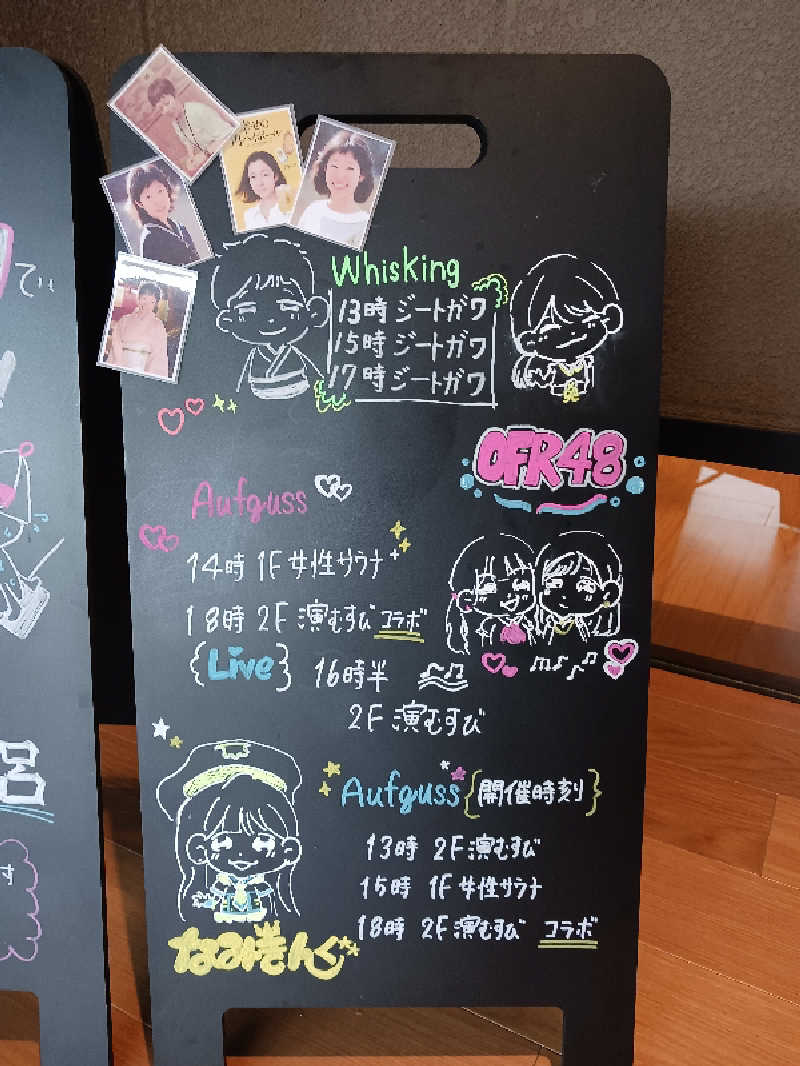 Whisking
13時 ジートガワ
15時 ジートガワ
17時 ジートガワ
OFR48
Aufguss
14時 1F 女性サウナ
18時 2F 演むすび コラボ
{Live} 16時半
2F 演むすび
Aufguss {開催時刻}
13時 2F 演むすび
15時 1F 女性サウナ
18時 2F 演むすび コラボ
なみきんぐ
で
呂
す